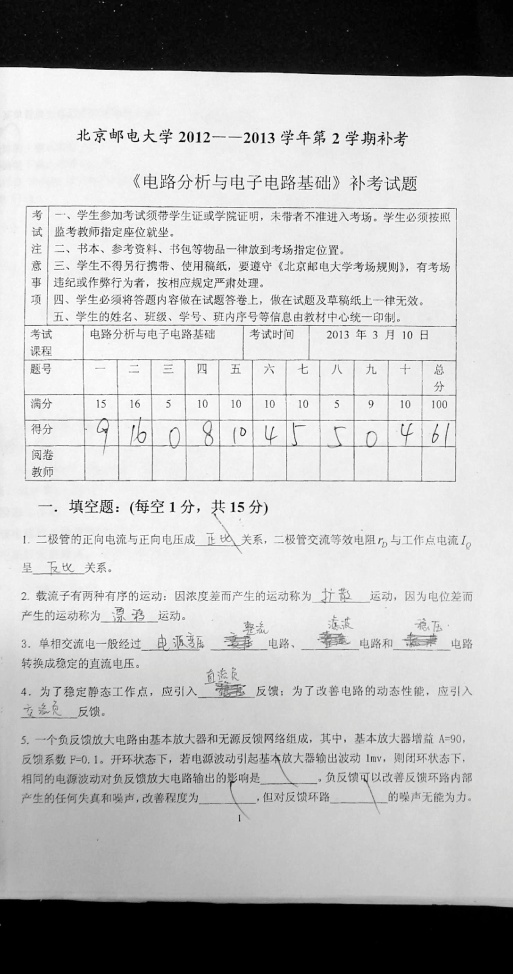 北京邮电大学 2012——2013 学年第 2 学期补考
《电路分析与电子电路基础》补考试题
考试注意事项
一、学生参加考试须带学生证或学院证明，未带者不准进入考场。学生必须按照
监考教师指定座位就坐。
二、书本、参考资料、书包等物品一律放到考场指定位置。
三、学生不得另行携带、使用稿纸，要遵守《北京邮电大学考场规则》，有考场
违纪或作弊行为者，按相应规定严肃处理。
四、学生必须将答题内容做在试题答卷上，做在试题及草稿纸上一律无效。
五、学生的姓名、班级、学号、班内序号等信息由教材中心统一印制。
考试课程 电路分析与电子电路基础 考试时间 2013 年 3 月 10 日
题号 一 二 三 四 五 六 七 八 九 十 总分
满分 15 16 5 10 10 10 10 5 9 10 100
得分 9 16 0 8 10 4 5 5 0 4 61
阅卷教师
一．填空题：(每空 1 分，共 15 分)
1. 二极管的正向电流与正向电压成 正比 关系，二极管交流等效电阻 r_D 与工作点电流 I_Q
呈 反比 关系。
2. 载流子有两种有序的运动：因浓度差而产生的运动称为 扩散 运动，因为电位差而
产生的运动称为 漂移 运动。
3. 单相交流电一般经过 电源变压 整流 电路、 滤波 电路和 稳压 电路
转换成稳定的直流电压。
4. 为了稳定静态工作点，应引入 直流负 反馈；为了改善电路的动态性能，应引入
交流负 反馈。
5. 一个负反馈放大电路由基本放大器和无源反馈网络组成，其中，基本放大器增益 A=90，
反馈系数 F=0.1。开环状态下，若电源波动引起基本放大器输出波动 1mv，则闭环状态下，
相同的电源波动对负反馈放大电路输出的影响是________。负反馈可以改善反馈环路内部
产生的任何失真和噪声，改善程度为________，但对反馈环路________的噪声无能为力。
1